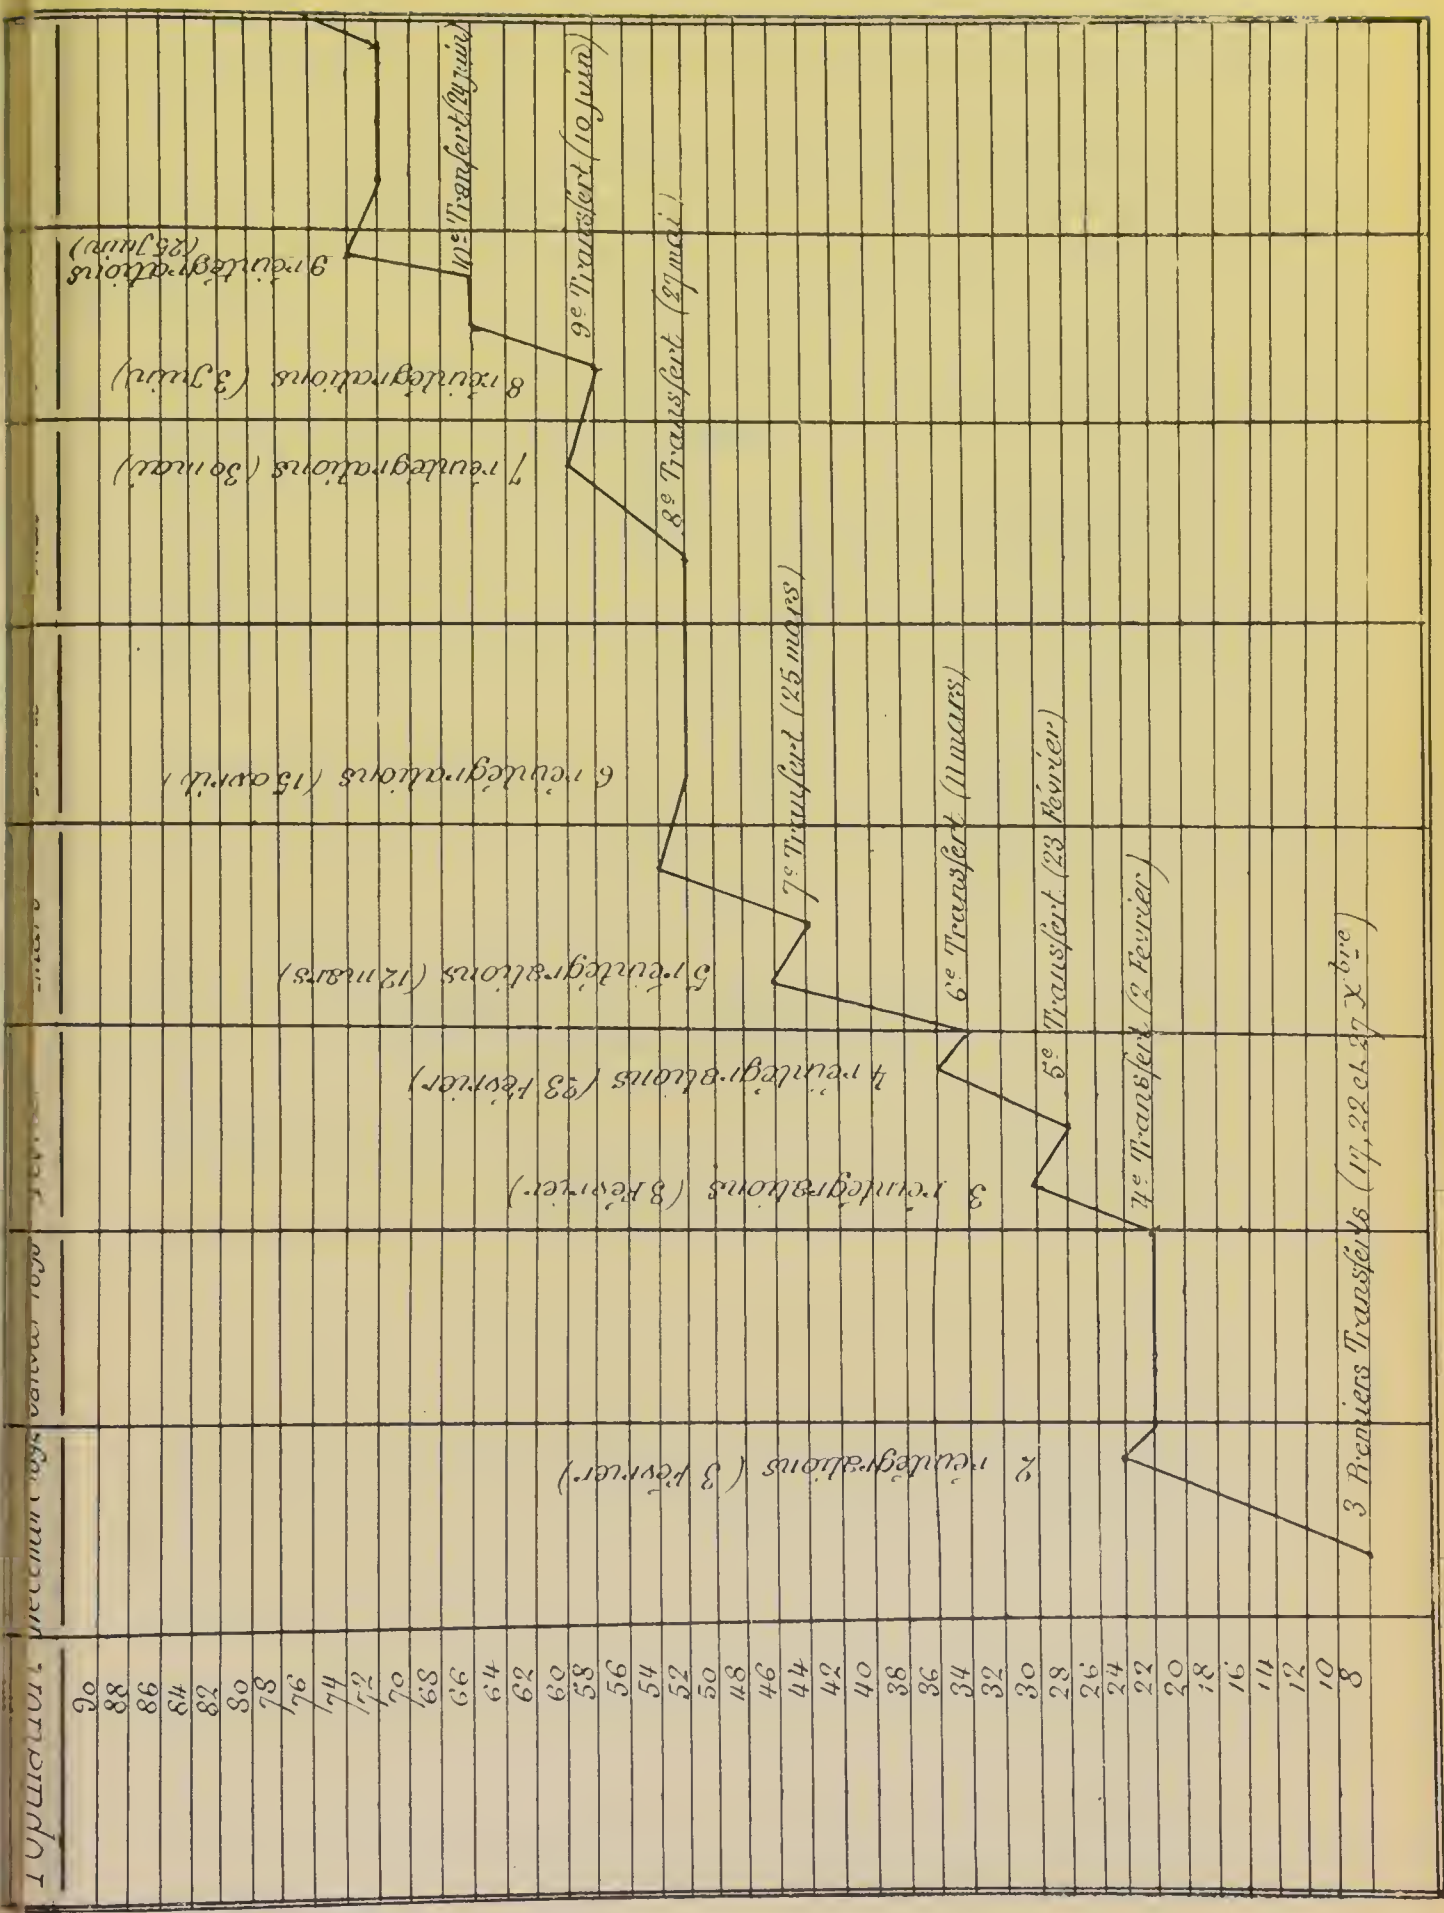 Population
90
88
86
84
82
80
78
76
74
72
70
68
66
64
62
60
58
56
54
52
50
48
46
44
42
40
38
36
34
32
30
28
26
24
22
20
18
16
14
12
10
8
3 Premiers Transferts (17, 22 et 27 Xbre)
2 réintégrations (3 Février)
4e Transfert (2 Fevrier)
3 réintégrations (8 Février)
5e Transfert (23 Février)
4 réintégrations (23 Février)
6e Transfert (11 mars)
5 réintégrations (12 mars)
7e Transfert (25 mars)
6 réintégrations (15 avril)
8e Transfert (27 mai)
7 réintégrations (30 mai)
8 réintégrations (3 Juin)
9e Transfert (10 juin)
10e Transfert (24 juin)
9 réintégrations
(25 Juin)